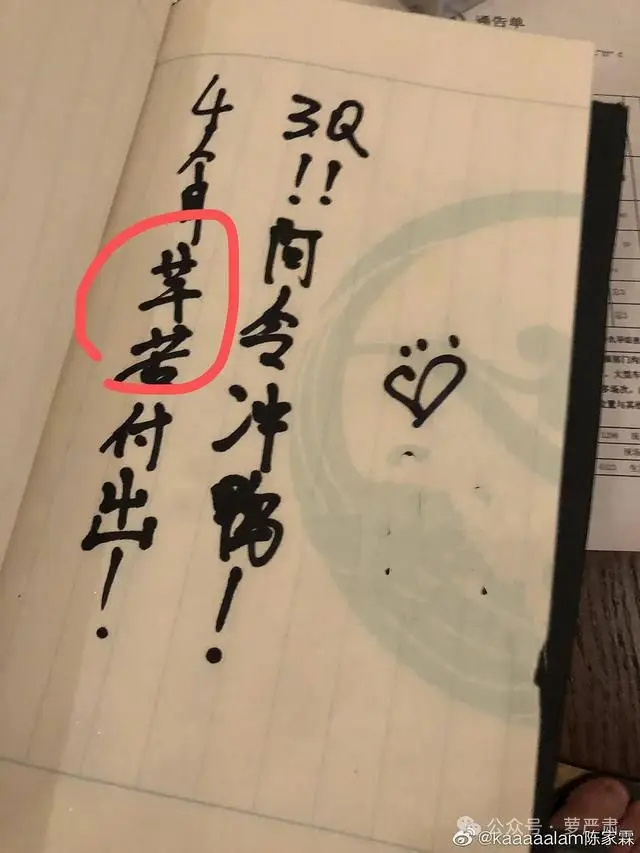 通告单
3Q!!阿令冲鸭!
4个月莘苦付出!
公众号 · 萝严肃
@kaaaaalam陈家霖